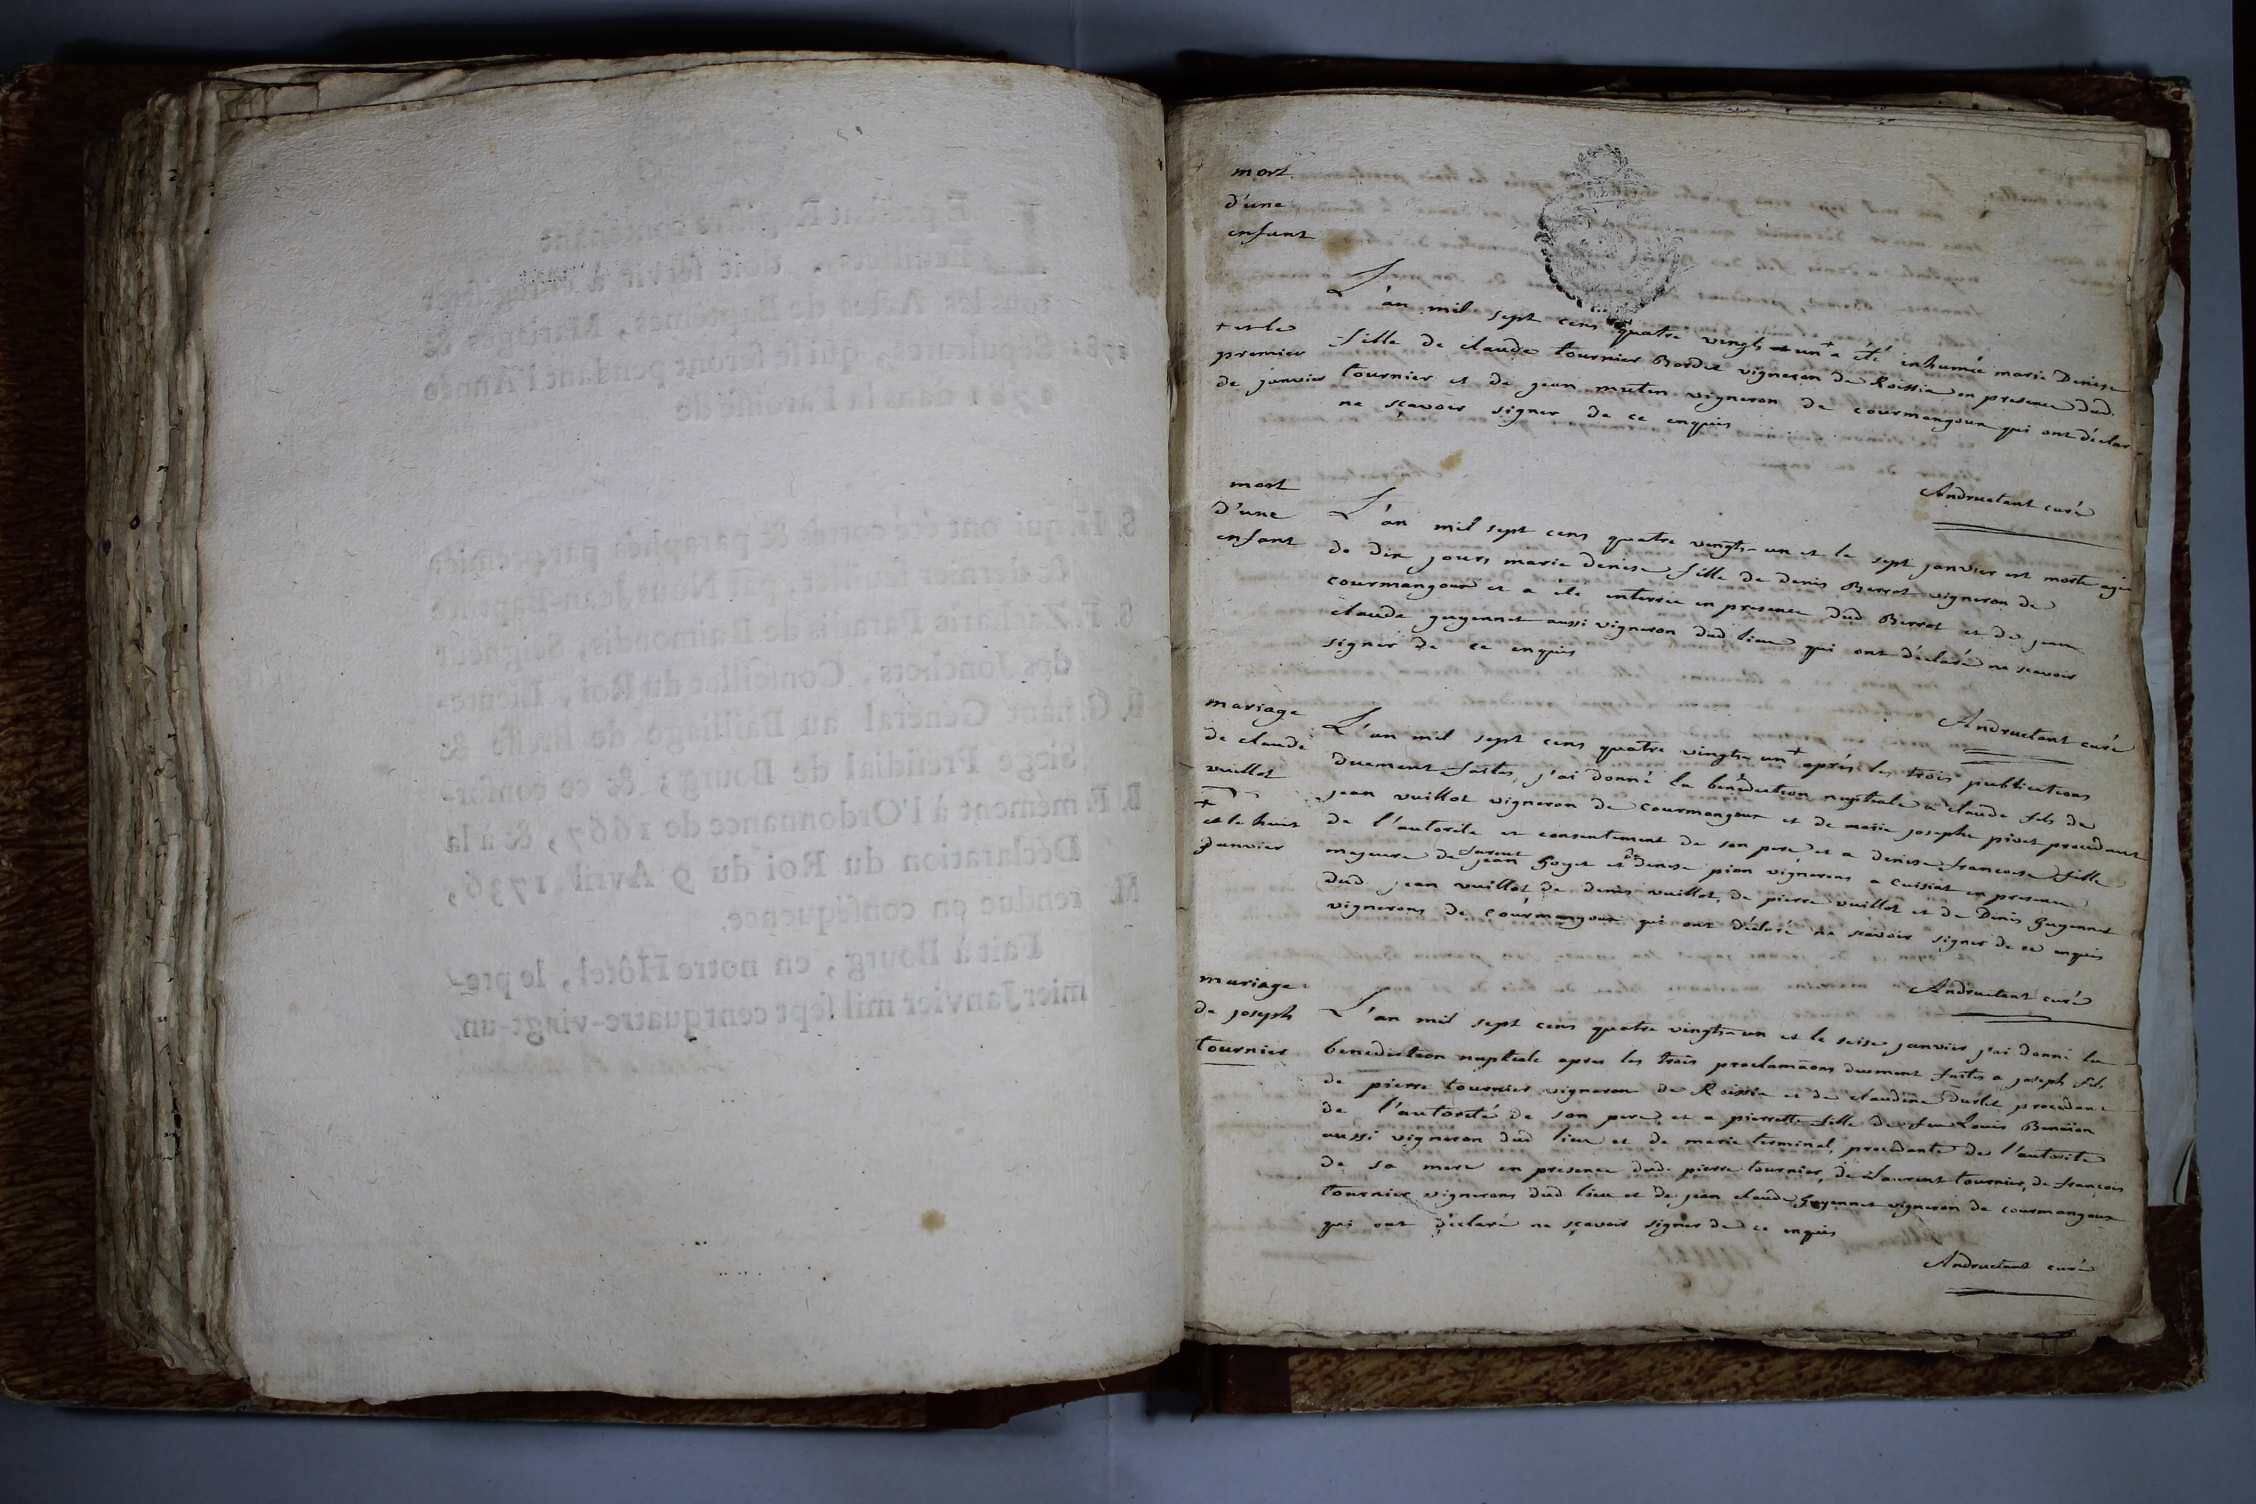 mort
d'une
enfant
L'an mil sept cens quatre vingts et un + a été inhumée marie Denise
+ et le
premier
de janvier
fille de claude tournier Bordet vigneron de Roissia en presence dud.
tournier et de jean mutin vigneron de courmangoux qui ont déclar
ne sçavoir signer de ce enquis
Andruetant curé
mort
d'une
enfant
L'an mil sept cens quatre vingts-un et le sept janvier est morte agée
de dix jours marie denise fille de denis Berrot vigneron de
courmangoux et a été enterrée en presence dud Berrot et de jean
claude guyennet aussi vigneron dud lieu qui ont déclaré ne scavoir
signer de ce enquis
Andruetant curé
mariage
de claude
vuillot
+
et le huit
janvier
L'an mil sept cens quatre vingts-un + après les trois publications
duement faites, j'ai donné la bénédiction nuptiale a claude fils de
jean vuillot vigneron de courmangoux et de marie josephe pivet procedant
de l'autorite et consentement de son pere et a denise francoise fille
majeure de jean Goyet et denise pion vignerons a cuisiat en presence
dud jean vuillot de denis vuillot, de pierre vuillot et de Denis guyennet
vignerons de courmangoux qui ont déclaré ne scavoir signer de ce enquis
Andruetant curé
mariage
de joseph
tournier
L'an mil sept cens quatre vingts-un et le seise janvier j'ai donné la
benediction nuptiale apres les trois proclamaons duement faites a joseph fils
de pierre tournier vigneron de Roissia et de claudine Durlet procedant
de l'autorité de son pere, et a pierrette fille de feu Louis Benoion
aussi vigneron dud lieu et de marie terminal, procedante de l'autorité
de sa mere en presence dud. pierre tournier, de Laurent tournier, de françois
tournier vignerons dud lieu et de jean claude guyennet vigneron de courmangoux
qui ont déclaré ne sçavoir signer de ce enquis
Andruetant curé